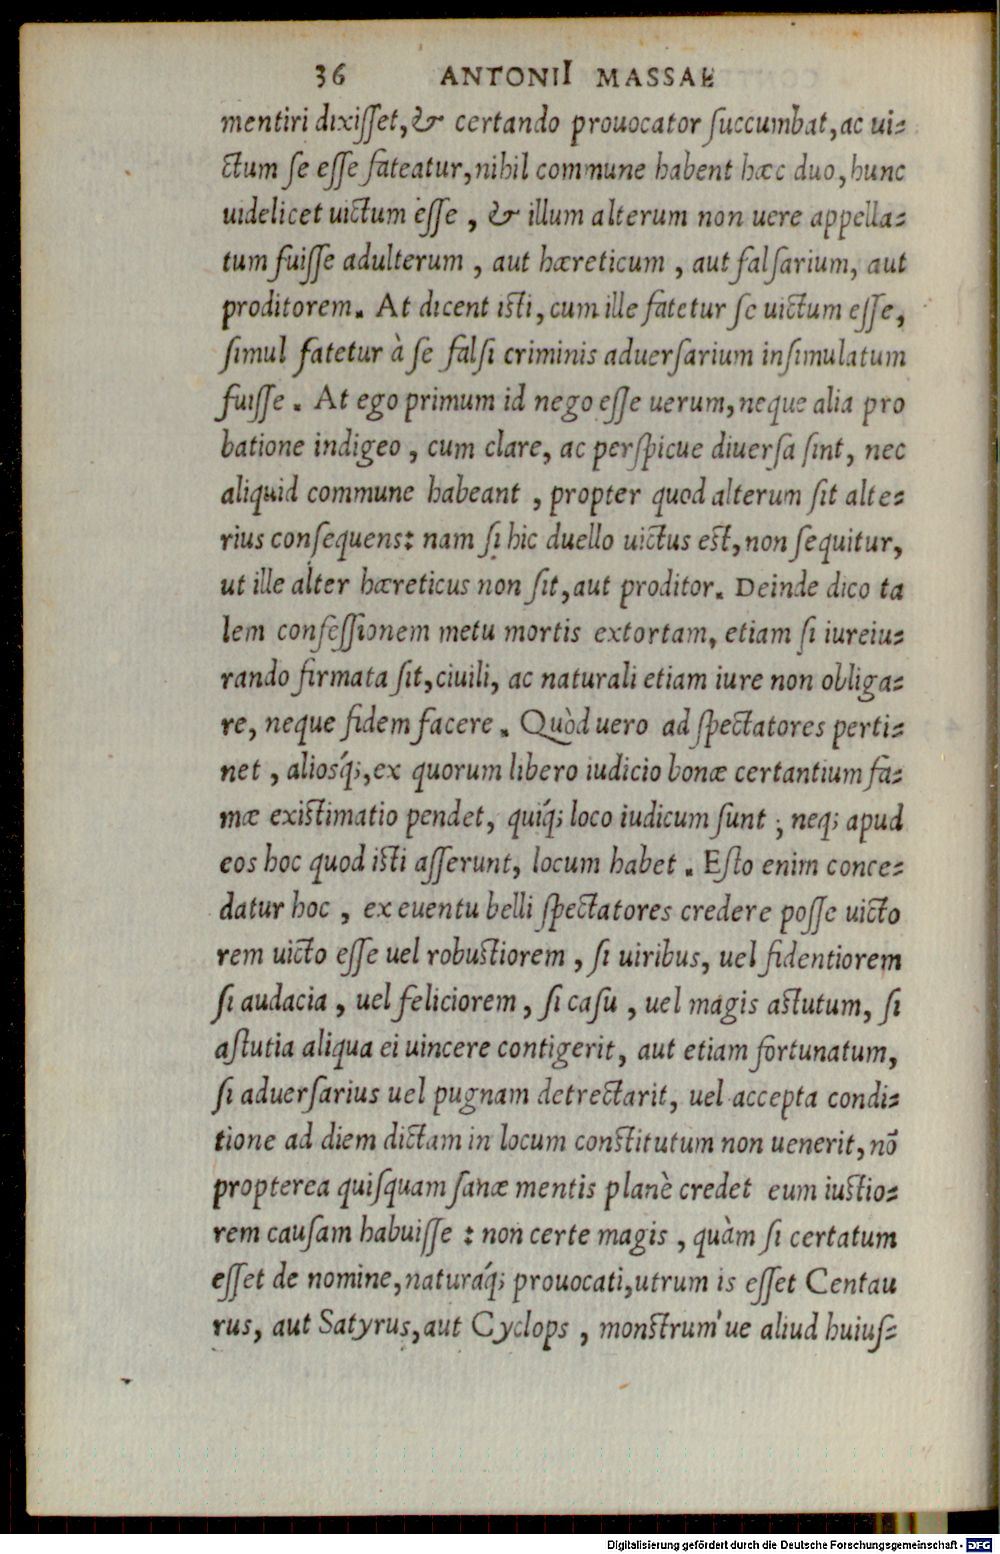 36 ANTONII MASSAE
mentiri dixiſſet, & certando prouocator ſuccumbat, ac ui⸗
ctum ſe eſſe fateatur, nihil commune habent hæc duo, hunc
uidelicet uictum eſſe , & illum alterum non uere appella⸗
tum fuiſſe adulterum , aut hæreticum , aut falſarium, aut
proditorem. At dicent iſti, cum ille fatetur ſe uictum eſſe,
ſimul fatetur à ſe falſi criminis aduerſarium inſimulatum
fuiſſe . At ego primum id nego eſſe uerum, neque alia pro
batione indigeo , cum clare, ac perſpicue diuerſa ſint, nec
aliquid commune habeant , propter quod alterum ſit alte⸗
rius conſequens: nam ſi hic duello uictus eſt, non ſequitur,
ut ille alter hæreticus non ſit, aut proditor. Deinde dico ta
lem confeſſionem metu mortis extortam, etiam ſi iureiu⸗
rando firmata ſit, ciuili, ac naturali etiam iure non obliga⸗
re, neque fidem facere . Quòd uero ad ſpectatores perti⸗
net , alioſq́;, ex quorum libero iudicio bonæ certantium fa⸗
mæ exiſtimatio pendet, quiq́; loco iudicum ſunt ; neq; apud
eos hoc quod iſti aſſerunt, locum habet . Eſto enim conce⸗
datur hoc , ex euentu belli ſpectatores credere poſſe uicto
rem uicto eſſe uel robuſtiorem , ſi uiribus, uel fidentiorem
ſi audacia , uel feliciorem , ſi caſu , uel magis aſtutum, ſi
aſtutia aliqua ei uincere contigerit, aut etiam fortunatum,
ſi aduerſarius uel pugnam detrectarit, uel accepta condi⸗
tione ad diem dictam in locum conſtitutum non uenerit, nō
propterea quiſquam ſanæ mentis planè credet eum iuſtio⸗
rem cauſam habuiſſe : non certe magis , quàm ſi certatum
eſſet de nomine, naturaq́; prouocati, utrum is eſſet Centau
rus, aut Satyrus, aut Cyclops , monſtrum'ue aliud huiuſ⸗
Digitalisierung gefördert durch die Deutsche Forschungsgemeinschaft - DFG